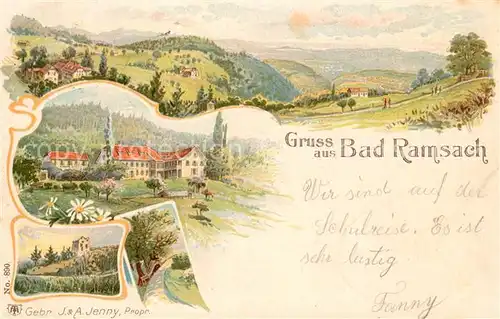 Gruss
aus Bad Ramsach
Wir sind auf der
Schulreise. Es ist
sehr lustig.
Fanny
No. 890
Gebr. J. & A. Jenny, Propr.